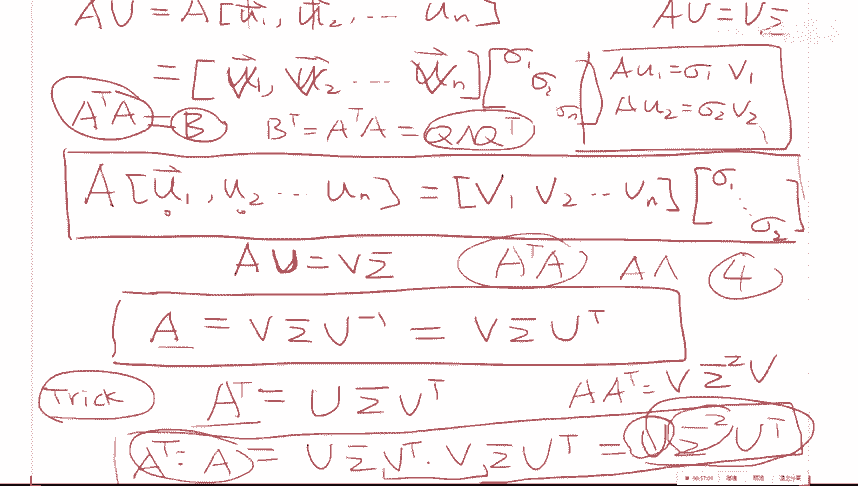 AU = A[u⃗₁, u⃗₂, ... uₙ] AU = VΣ
= [V⃗₁, V⃗₂ ... V⃗ₙ] [σ₁ σ₂ σₙ] Au₁ = σ₁ V₁
Au₂ = σ₂ V₂
AᵀA = B Bᵀ = AᵀA = QΛQᵀ
A [u⃗₁, u₂ ... uₙ] = [V₁ V₂ ... Vₙ] [σ₁ ⋱ σ₂]
AU = VΣ AᵀA AΛ 4
A = VΣU⁻¹ = VΣUᵀ
Trick Aᵀ = UΣVᵀ AAᵀ = VΣ²V
Aᵀ·A = UΣVᵀ·VΣUᵀ = UΣ²Uᵀ